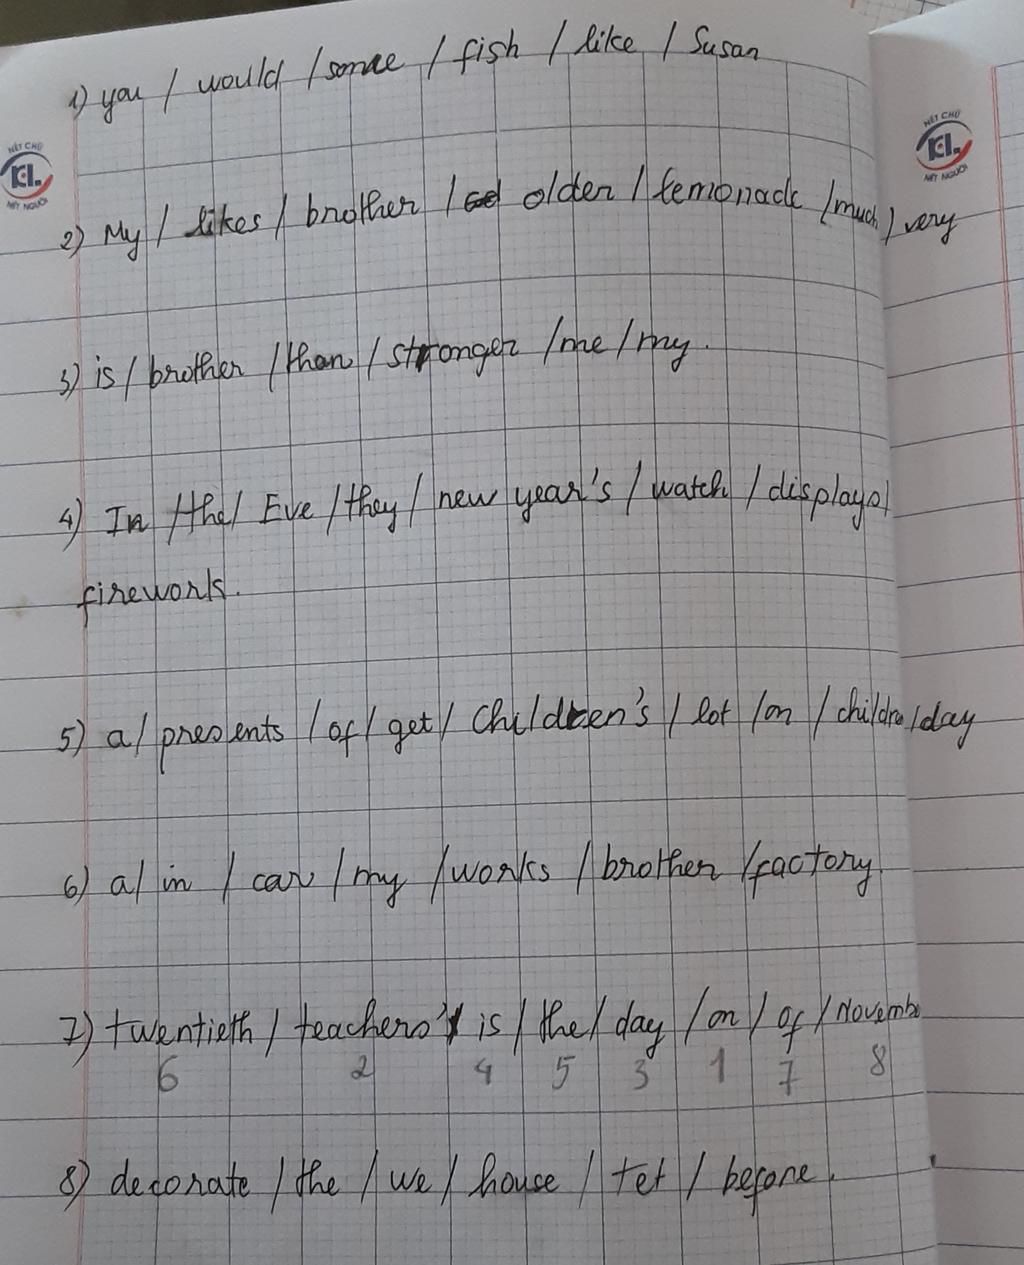 1) you / would / some / fish / like / Susan
NÉT CHỮ
KL.
NẾT NGƯỜI
NÉT CHỮ
KL.
NẾT NGƯỜI
2) My / likes / brother / older / lemonade / much / very
3) is / brother / than / stronger / me / my.
4) In / the / Eve / they / new year's / watch / displays /
firework.
5) a / presents / of / get / Children's / lot / on / childre / day
6) a / in / car / my / works / brother / factory
7) twentieth / teachers' / is / the / day / on / of / Novembe
6 2 4 5 3 1 7 8
8) decorate / the / we / house / tet / before.